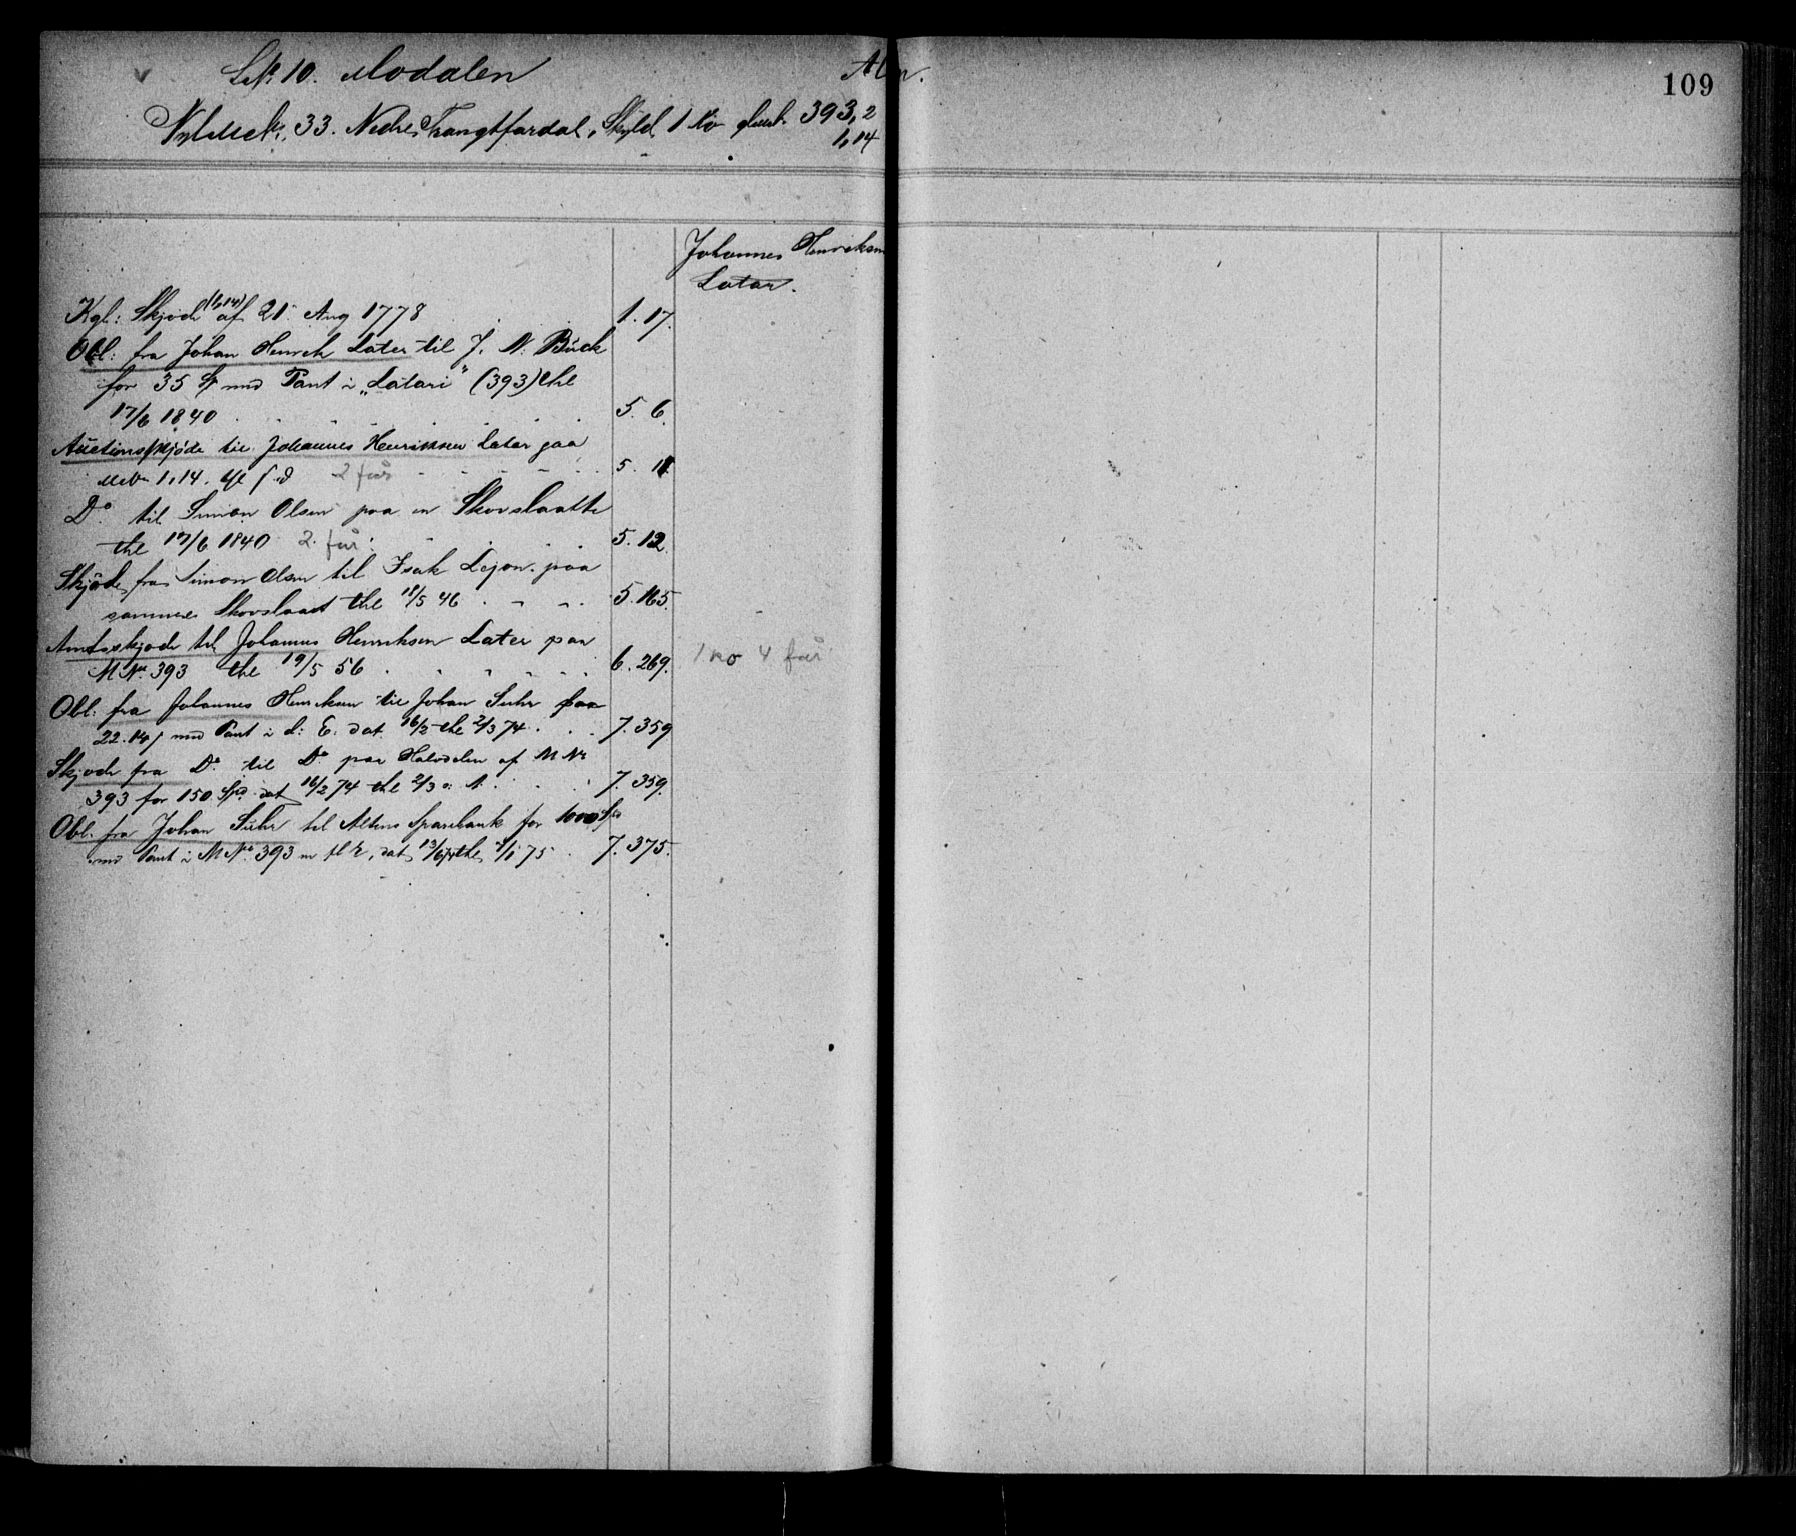 L.№ 10. Modalen
Alm.
109
33. Nedre Tangtfardal, Skyld 1 No gluml. 393,2
1,14
Johannes Henriksen
Latar.
Kgl: Skjøde (1,14) af 21 Aug 1778 1.17.
Obl: fra Johan Henrik Later til J. N. Buck
for 35 med Pant i „Latari" (393) thl
17/6 1840 5. 6.
Auctionsskjøde til Johannes Henriksen Latar paa
1,14. 2 får 5. 11.
Do til Simon Olsen paa en Skovslaatte
thl 17/6 1840 2. får. 5. 12.
Skjøde fra Simon Olsen til Isak paa
samme Skovslaat thl 18/5 46 5. 165.
Amtsskjøde til Johannes Henriksen Later paa
M№ 393 thl 19/5 56 6. 269. 1 no 4 får
Obl: fra Johannes Henriksen til Johan Suhr paa
22.14 med Pant i d: E: dat 16/2 thl 2/3 74. 7. 359
Skjøde fra Do til Do paa Halvdelen af M№
393 for 150 Spd. dat 16/2 74 thl 2/3 s: A: 7. 359.
Obl. fra Johan Suhr til Altens Sparebank for 1000 Spd
med Pant i M№ 393 m fl r, dat 13/6 74 thl 75 7. 375.